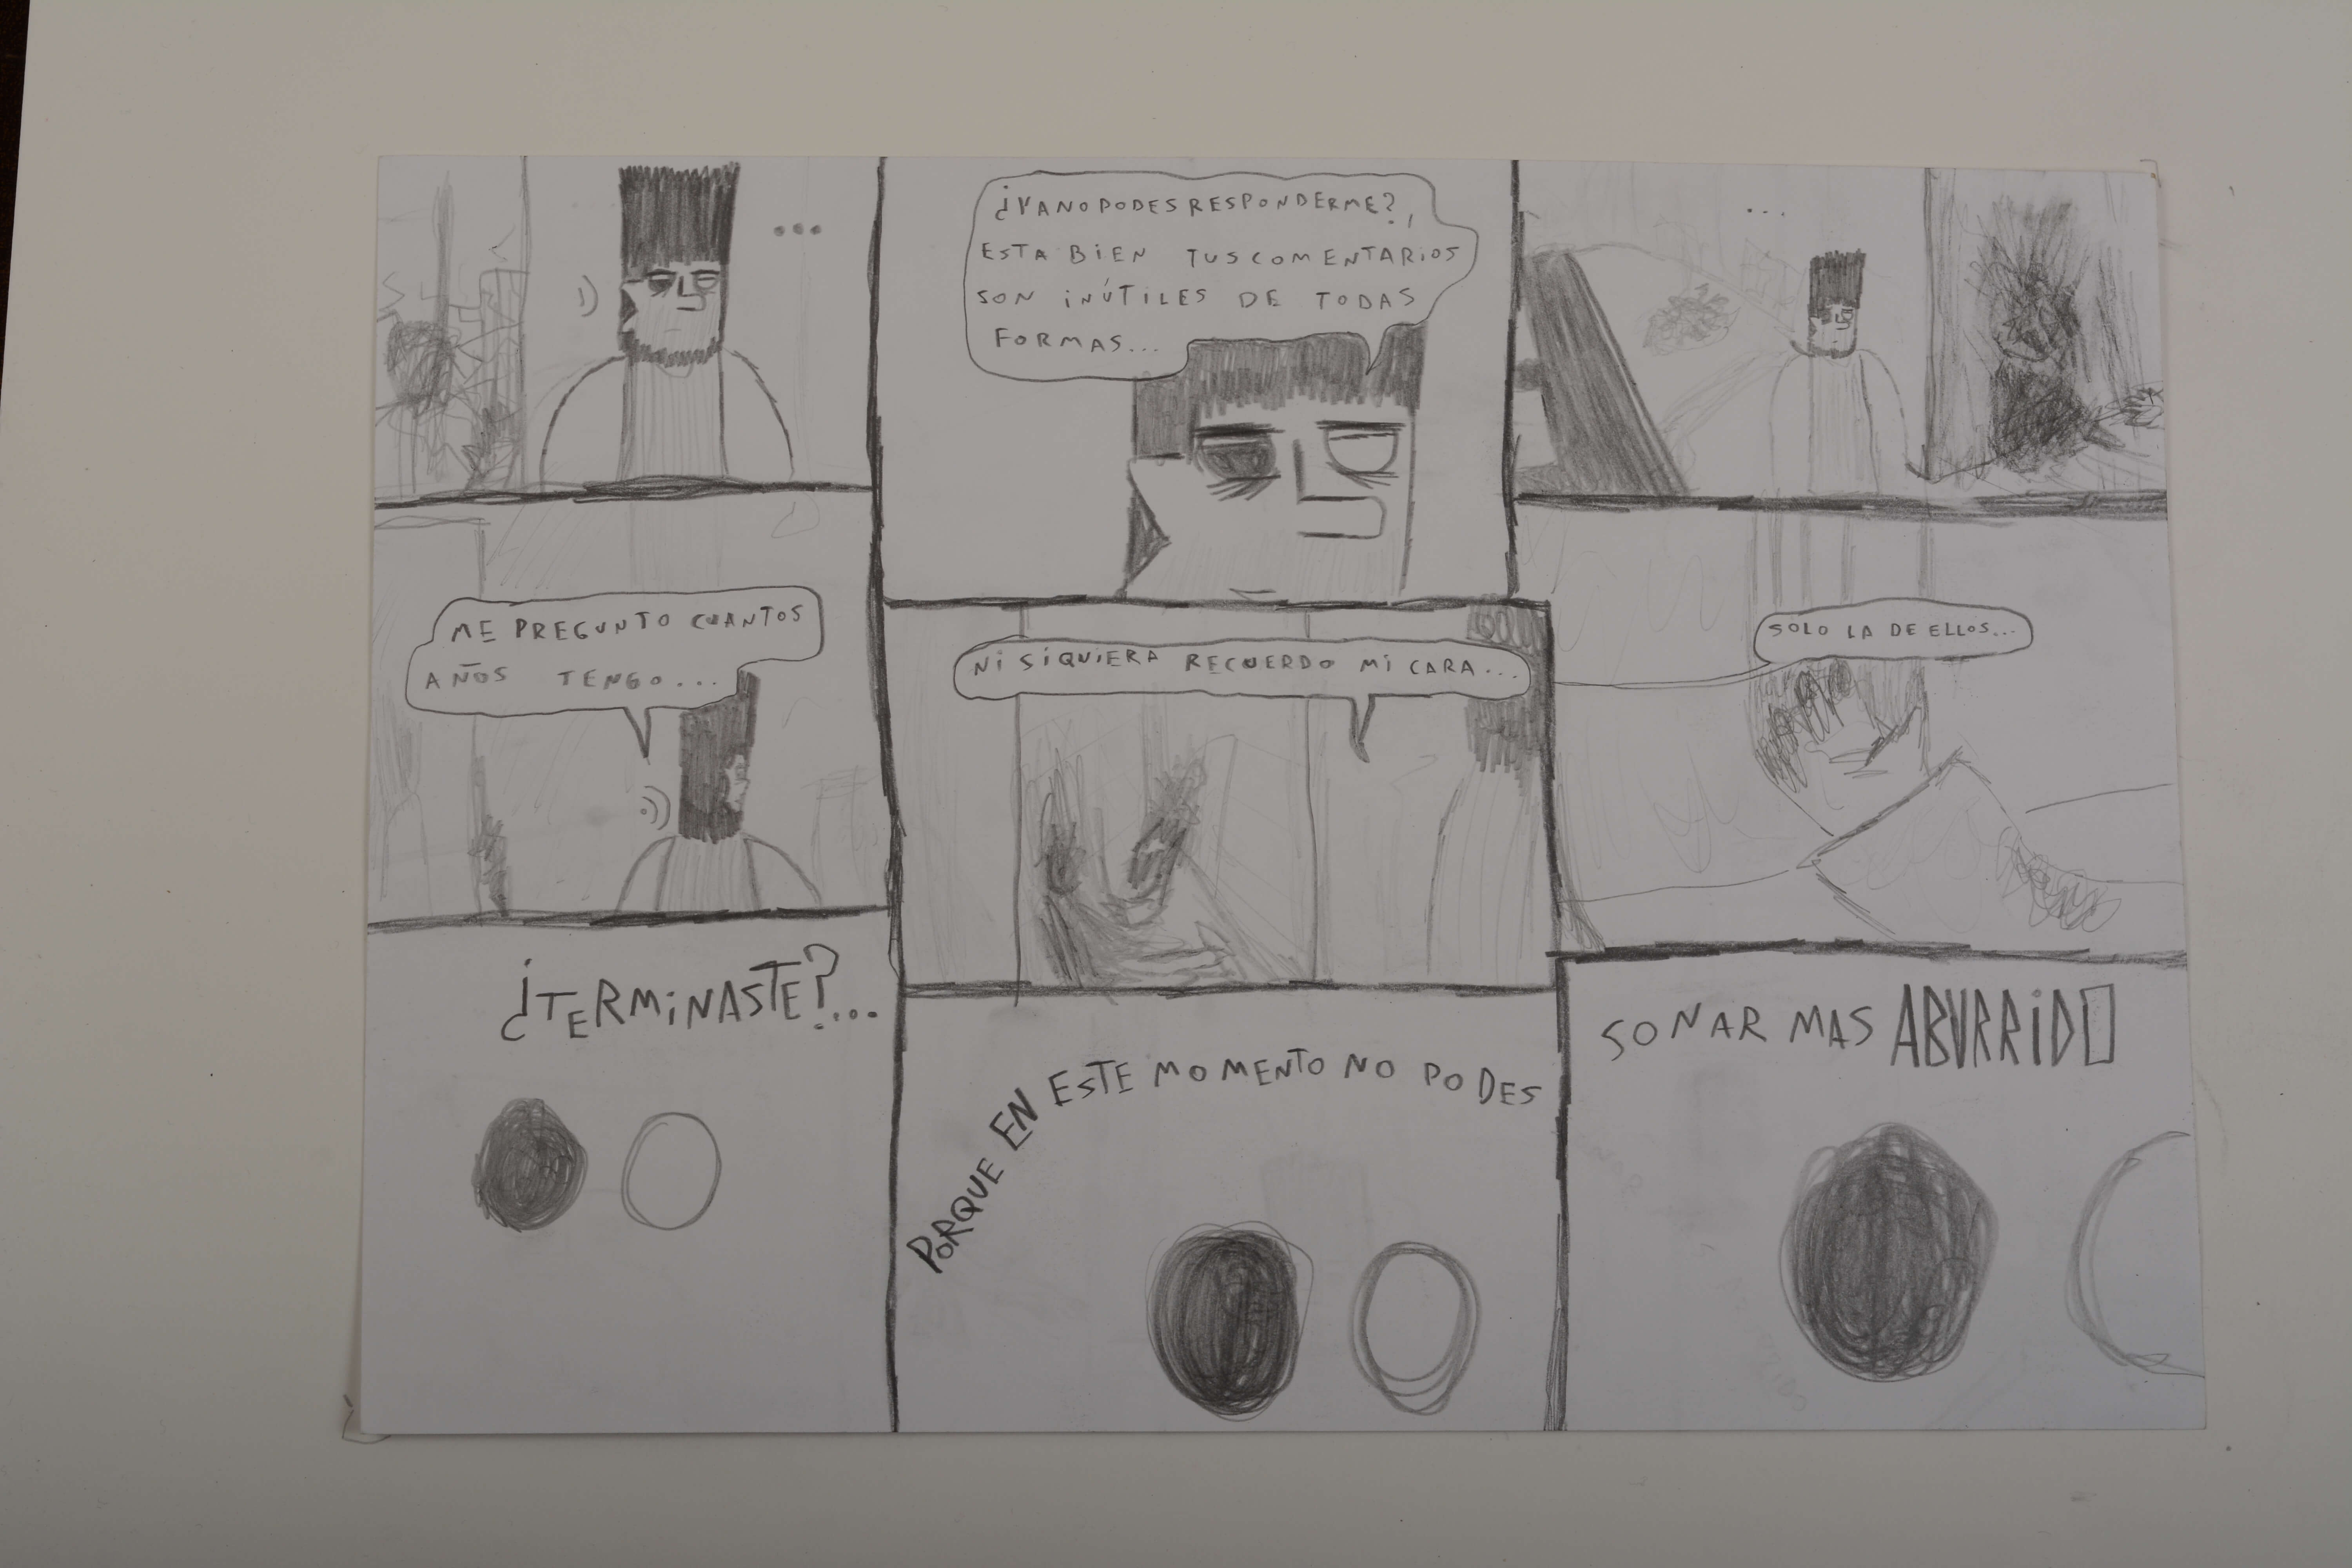 ...
¿YA NO PODES RESPONDERME?,
ESTA BIEN TUS COMENTARIOS
SON INÚTILES DE TODAS
FORMAS...
...
ME PREGUNTO CUANTOS
AÑOS TENGO...
NI SIQUIERA RECUERDO MI CARA...
SOLO LA DE ELLOS...
¿TERMINASTE?...
PORQUE EN ESTE MOMENTO NO PODES
SONAR MAS ABURRIDO